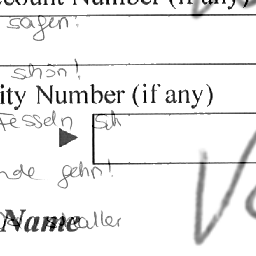 count Number (if any)
sagen!
schön!
ity Number (if any)
Fesseln Sch
nde gehn!
Name aller